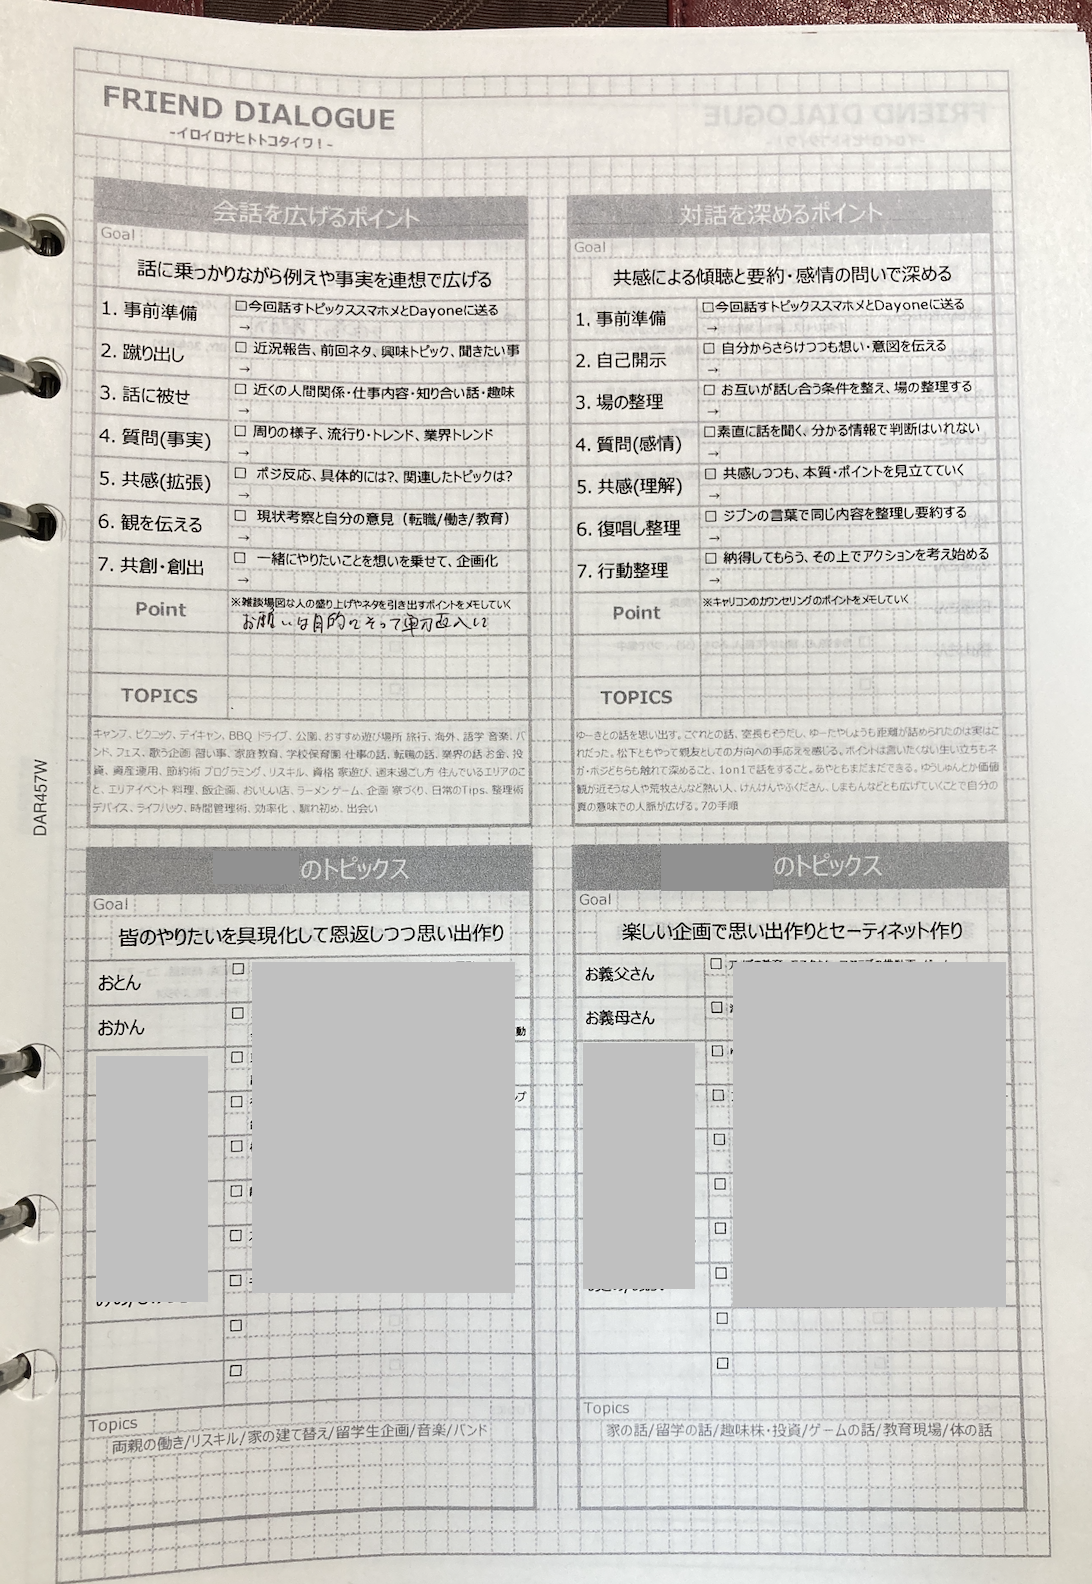 FRIEND DIALOGUE
-イロイロナヒトトコタイワ！-
会話を広げるポイント
Goal :
話に乗っかりながら例えや事実を連想で広げる
1. 事前準備
□今回話すトピックススマホメとDayoneに送る
→
2. 蹴り出し
□ 近況報告、前回ネタ、興味トピック、聞きたい事
→
3. 話に被せ
□ 近くの人間関係・仕事内容・知り合い話・趣味
→
4. 質問(事実)
□ 周りの様子、流行り・トレンド、業界トレンド
→
5. 共感(拡張)
□ ポジ反応、具体的には?、関連したトピックは?
→
6. 観を伝える
□ 現状考察と自分の意見（転職/働き/教育）
→
7. 共創・創出
□ 一緒にやりたいことを想いを乗せて、企画化
→
Point
※雑談場図な人の盛り上げやネタを引き出すポイントをメモしていく
お願いは目的にそって単刀直入に
TOPICS
キャンプ、ピクニック、デイキャン、BBQ ドライブ、公園、おすすめ遊び場所 旅行、海外、語学 音楽、バ
ンド、フェス、歌う企画 習い事、家庭教育、学校保育園 仕事の話、転職の話、業界の話 お金、投
資、資産運用、節約術 プログラミング、リスキル、資格 家遊び、週末過ごし方 住んでいるエリアのこ
と、エリアイベント 料理、飯企画、おいしい店、ラーメン ゲーム、企画 家づくり、日常のTips、整理術
デバイス、ライフハック、時間管理術、効率化 、馴れ初め、出会い
対話を深めるポイント
Goal
共感による傾聴と要約・感情の問いで深める
1. 事前準備
□今回話すトピックススマホメとDayoneに送る
→
2. 自己開示
□ 自分からさらけつつも想い・意図を伝える
→
3. 場の整理
□ お互いが話し合う条件を整え、場の整理する
→
4. 質問(感情)
□素直に話を聞く、分かる情報で判断はいれない
→
5. 共感(理解)
□ 共感しつつも、本質・ポイントを見立てていく
→
6. 復唱し整理
□ ジブンの言葉で同じ内容を整理し要約する
→
7. 行動整理
□ 納得してもらう、その上でアクションを考え始める
→
Point
※キャリコンのカウンセリングのポイントをメモしていく
TOPICS
ゆーきとの話を思い出す。こぐれとの話、室長もそうだし、ゆーたやしょうも距離が詰められたのは実はこ
れだった。松下ともやって親友としての方向への手応えを感じる。ポイントは言いたくない生い立ちもネ
ガ・ポジどちらも触れて深めること、1on1で話をすること。あやともまだまだできる。ゆうしゅんとか価値
観が近そうな人や荒牧さんなど熱い人、けんけんやふくださん、しまもんなどとも広げていくことで自分の
真の意味での人脈が広げる。7の手順
のトピックス
Goal
皆のやりたいを具現化して恩返しつつ思い出作り
おとん
□
おかん
□
動
□
□
プ
□
□
□
□
□
□
Topics
両親の働き/リスキル/家の建て替え/留学生企画/音楽/バンド
のトピックス
Goal
楽しい企画で思い出作りとセーティネット作り
お義父さん
□
お義母さん
□
□
□
□
□
□
□
□
□
Topics
家の話/留学の話/趣味株・投資/ゲームの話/教育現場/体の話
DAR457W